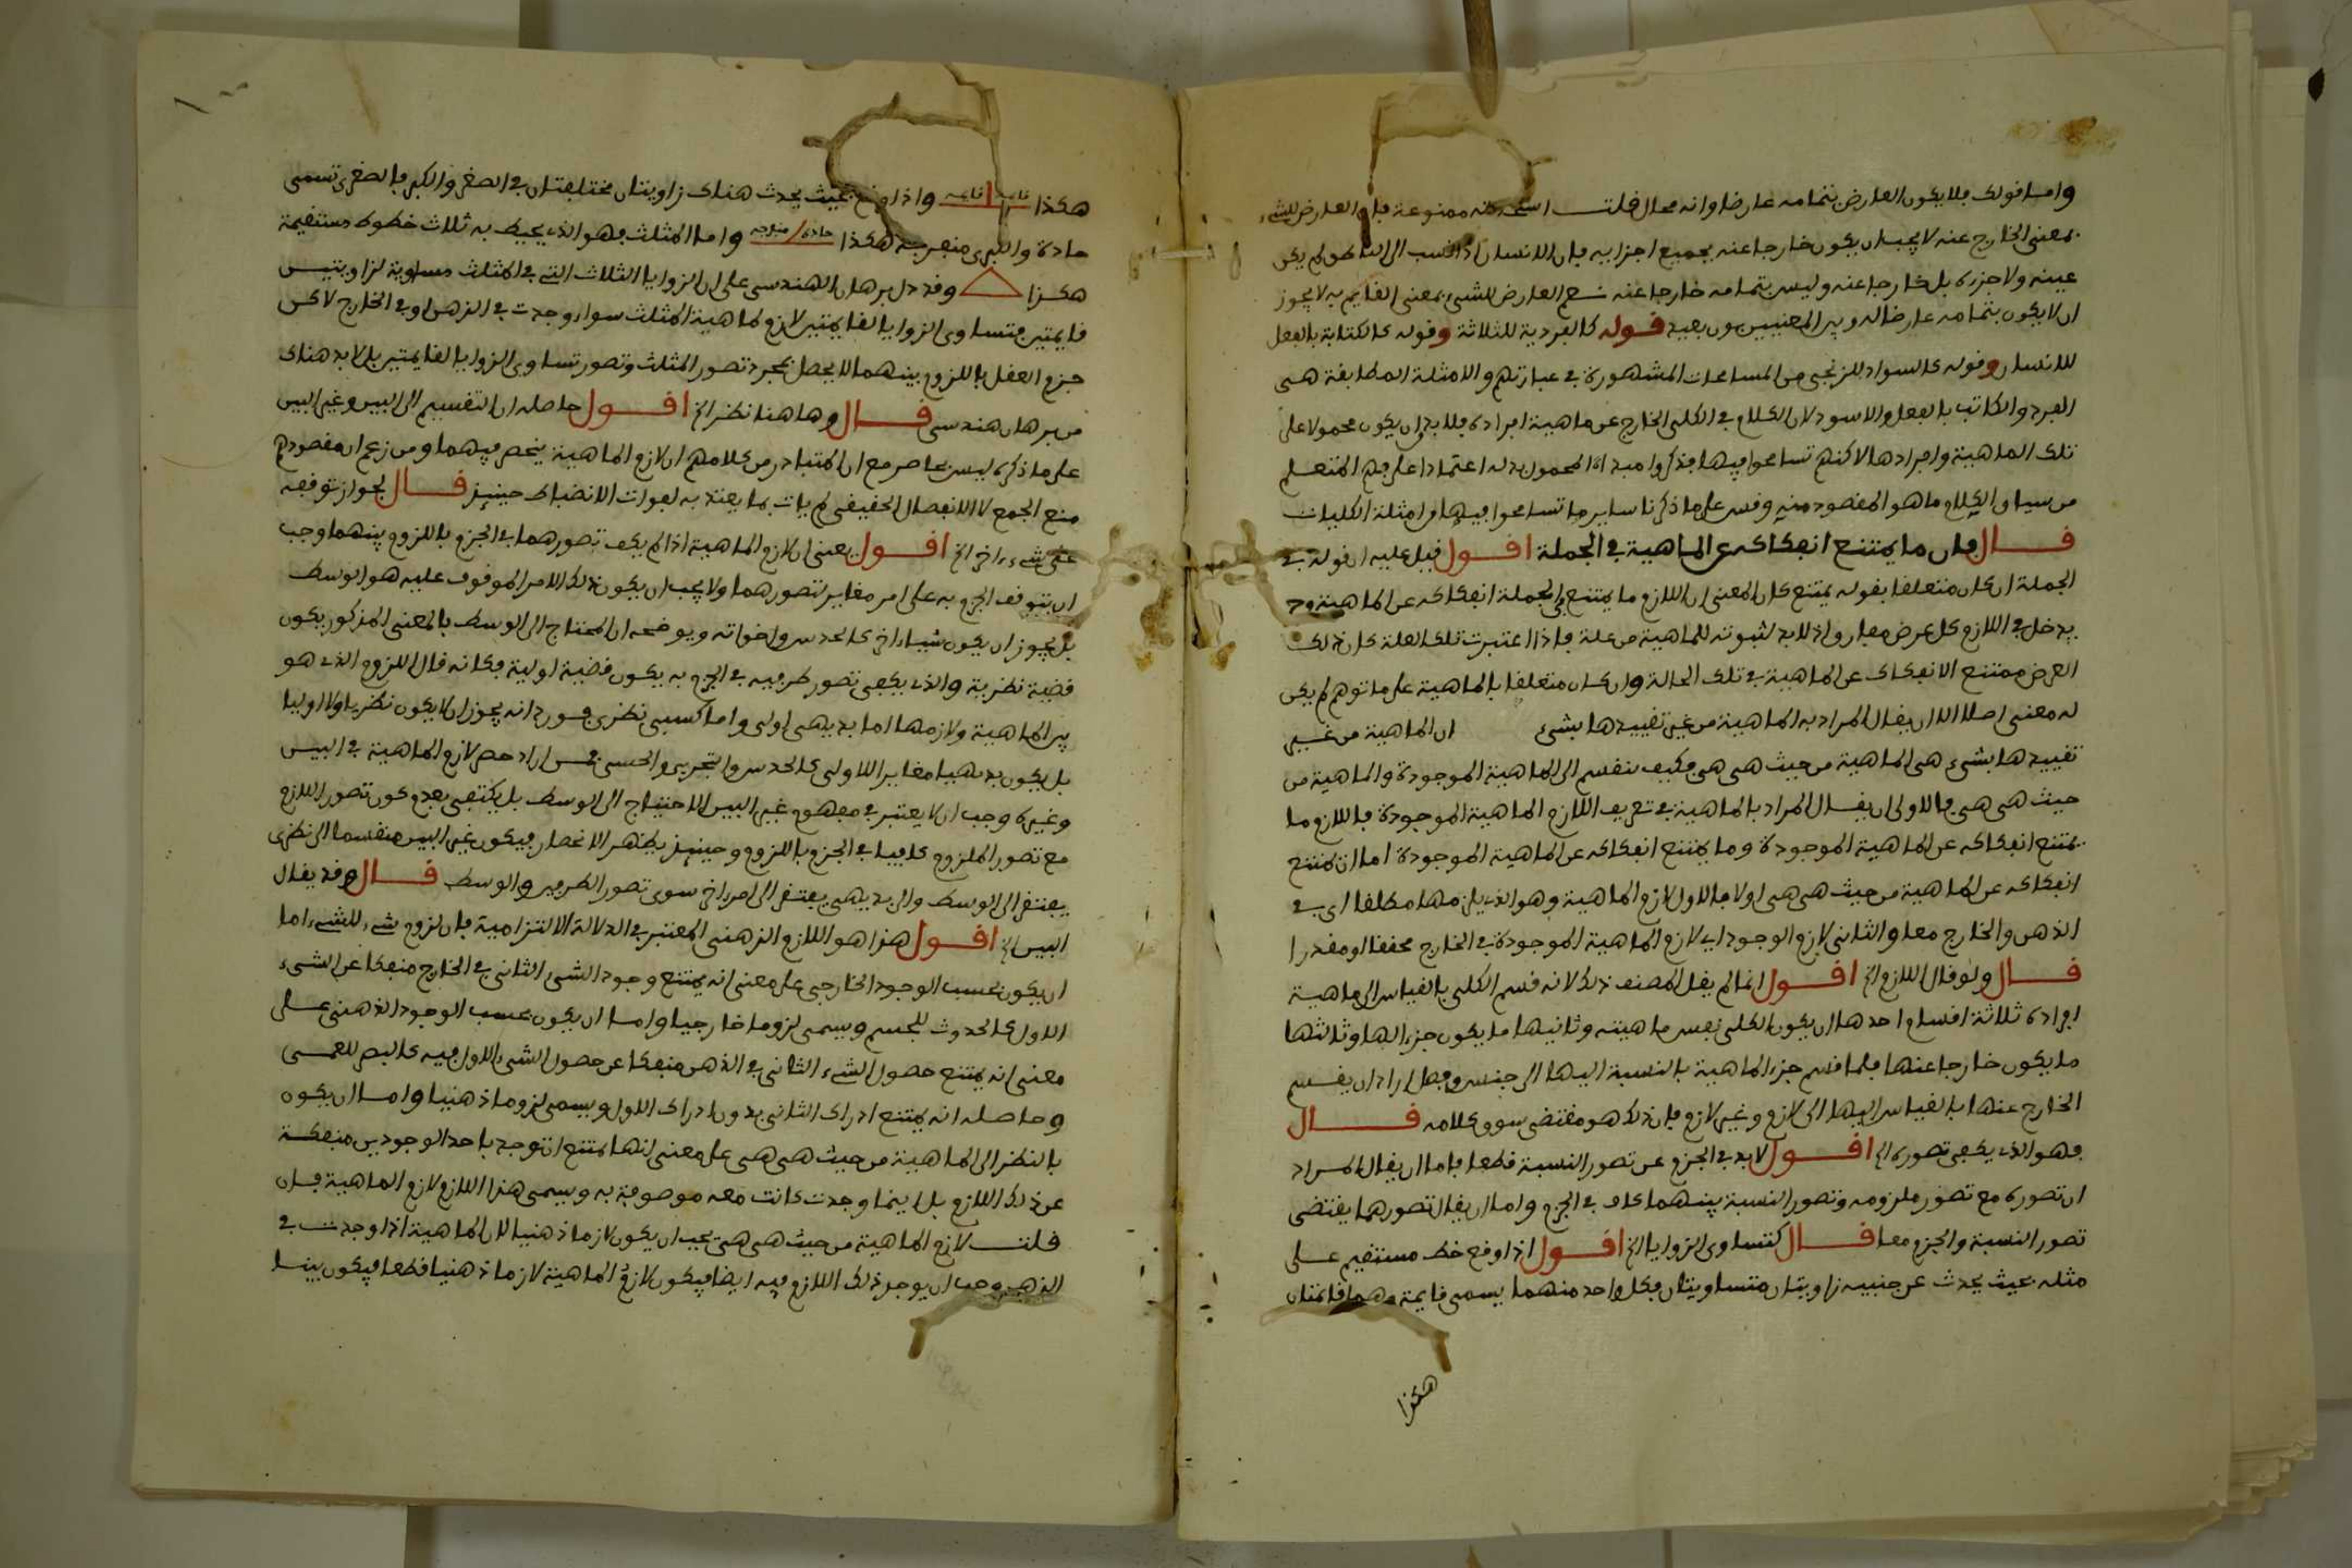 واما قولك فلا يكون العارض بتمامه عارضا وانه محال قلت استحالته ممنوعة فان العارض للشيء
بمعنى الخارج عنه لا يجب ان يكون خارجا عنه بجميع اجزايه فان الانسان اذا نسب الى الناطق لم يكن
عينه ولا جزءه بل خارجا عنه وليس بتمامه خارجا عنه نعم العارض للشيء بمعنى القايم به لا يجوز
ان لا يكون بتمامه عارضا له وبين المعنيين بون بعيد قوله كالفردية للثلاثة وقوله كالكتابة بالفعل
للانسان وقوله كالسواد للزنجي من المسامحات المشهورة في عبارتهم والامثلة المطابقة هي
الفرد والكاتب بالفعل والاسود لان الكلام في الكلي الخارج عن ماهية افراده فلا بد ان يكون محمولا على
تلك الماهية وافرادها لاكنهم تسامحوا فيها فذكروا مبدا المحمول بدله اعتمادا على فهم المتعلم
من سياق الكلام ما هو المقصود منه وقس على ما ذكرنا ساير ما تسامحوا فيها من امثلة الكليات
قال فان ما يمتنع انفكاكه عن الماهية في الجملة اقول قيل عليه ان قوله في
الجملة ان كان متعلقا بقوله يمتنع كان المعنى ان اللازم ما يمتنع في الجملة انفكاكه عن الماهية وح
يدخل في اللازم كل عرض مفارق اذ لا بد لثبوته للماهية من علة فاذا اعتبرت تلك العلة كان ذلك
العرض ممتنع الانفكاك عن الماهية في تلك الحالة وان كان متعلقا بالماهية على ما توهم لم يكن
له معنى اصلا الا ان يقال المراد به الماهية من غير تقييدها بشيء ان الماهية من غير
تقييدها بشيء هي الماهية من حيث هي هي فكيف تنقسم الى الماهية الموجودة والماهية من
حيث هي هي فالاولى ان يقال المراد بالماهية في تعريف اللازم الماهية الموجودة فاللازم ما
يمتنع انفكاكه عن الماهية الموجودة وما يمتنع انفكاكه عن الماهية الموجودة اما ان يمتنع
انفكاكه عن الماهية من حيث هي هي اولا فالاول لازم الماهية وهو الذي يلزمها مطلقا اي في
الذهن والخارج معا والثاني لازم الوجود اي لازم الماهية الموجودة في الخارج محققا او مقدرا
قال ولو قال اللازم الخ اقول انما لم يقل المصنف ذلك لانه قسم الكلي بالقياس الى ماهية
افراده ثلاثة اقسام احدها ان يكون الكلي نفس ماهيته وثانيها ما يكون جزءا لها وثالثها
ما يكون خارجا عنها فلما قسم جزء الماهية بالنسبة اليها الى جنس وفصل اراد ان يقسم
الخارج عنها بالقياس اليها الى لازم وغير لازم فان ذلك هو مقتضى سوق كلامه قال
فهو الذي يكفي تصوره الخ اقول لا بد في الجزم من تصور النسبة قطعا فاما ان يقال المراد
ان تصوره مع تصور ملزومه وتصور النسبة بينهما كاف في الجزم واما ان يقال تصورهما يقتضي
تصور النسبة والجزم معا قال كتساوي الزوايا الخ اقول اذا وقع خط مستقيم على
مثله بحيث يحدث عن جنبيه زاويتان متساويتان فكل واحد منهما يسمى قايمة وهما قائمتان
هكذا
هكذا قايمة قايمة واذا وقع بحيث يحدث هناك زاويتان مختلفتان في الصغر والكبر فالصغرى تسمى
حادة والكبرى منفرجة هكذا حادة منفرجة واما المثلث فهو الذي يحيط به ثلاث خطوط مستقيمة
هكذا وقد دل برهان الهندسي على ان الزوايا الثلاث التي في المثلث مساوية لزاويتين
قايمتين فتساوي الزوايا لقايمتين لازم لماهية المثلث سواء وجدت في الذهن او في الخارج لاكن
جزم العقل باللزوم بينهما لا يحصل بمجرد تصور المثلث وتصور تساوي الزوايا لقايمتين بل لا بد هناك
من برهان هندسي قال وهاهنا نظر الخ اقول حاصله ان التقسيم الى البين وغير البين
على ما ذكره ليس بحاصر مع ان المتبادر من كلامهم ان لازم الماهية ينحصر فيهما ومن زعم ان مقصودهم
منع الجمع لا الانفصال الحقيقي لم يات بما يعتد به لفوات الانضباط حينيذ قال لجواز توقفه
على شيء اخر الخ اقول يعني ان لازم الماهية اذا لم يكف تصورهما في الجزم باللزوم بينهما وجب
ان يتوقف الجزم به على امر مغاير لتصورهما ولا يجب ان يكون ذلك الامر الموقوف عليه هو الوسط
بل يجوز ان يكون شيئا اخر كالحدس واخواته ويوضحه ان المحتاج الى الوسط بالمعنى المذكور يكون
قضية نظرية والذي يكفي تصور طرفيه في الجزم به يكون قضية اولية فكانه قال اللزوم الذي هو
بين الماهية ولازمها اما بديهي اولى واما كسبي نظري فورد انه يجوز ان لا يكون نظريا ولا اوليا
بل يكون بديهيا مغايرا للاولى كالحدس والتجربي والحسي فمن اراد حصر لازم الماهية في البين
وغيره وجب ان لا يعتبر في مفهوم غير البين الاحتياج الى الوسط بل يكتفي بعدم كون تصور اللازم
مع تصور الملزوم كافيا في الجزم باللزوم وحينيذ يظهر الانحصار فيكون غير البين منقسما الى نظري
يفتقر الى الوسط والى بديهي يفتقر الى امر اخر سوى تصور الطرفين والوسط قال وقد يقال
البين الخ اقول هذا هو اللازم الذهني المعتبر في الدلالة الالتزامية فان لزوم شيء للشيء اما
ان يكون بحسب الوجود الخارجي على معنى انه يمتنع وجود الشيء الثاني في الخارج منفكا عن الشيء
الاول كالحدوث للجسم ويسمى لزوما خارجيا واما ان يكون بحسب الوجود الذهني على
معنى انه يمتنع حصول الشيء الثاني في الذهن منفكا عن حصول الشيء الاول فيه كالبصر للعمى
وحاصله انه يمتنع ادراك الثاني بدون ادراك الاول ويسمى لزوما ذهنيا واما ان يكون
بالنظر الى الماهية من حيث هي هي على معنى انها يمتنع ان توجد باحد الوجودين منفكة
عن ذلك اللازم بل اينما وجدت كانت معه موصوفة به ويسمى هذا اللازم لازم الماهية فان
قلت لازم الماهية من حيث هي هي يجب ان يكون لازما ذهنيا لان الماهية اذا وجدت في
الذهن وجب ان يوجد ذلك اللازم فيه ايضا فيكون لازم الماهية لازما ذهنيا قطعا فيكون بينا